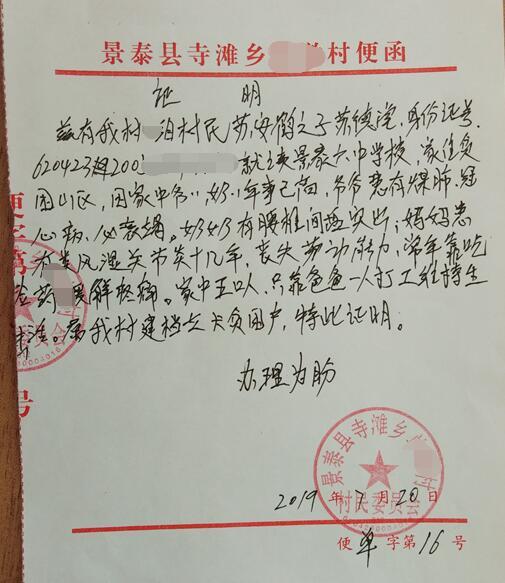 景泰县寺滩乡 村便函
证 明
兹有我村 泊村民苏安鹤之子苏德 ,身份证号
620423 200 就读景泰六中学校,家住贫
困山区,因家中爷爷奶奶年事已高,爷爷患有煤肺、冠
心病、心衰竭。奶奶有腰椎间盘突出,妈妈患
有类风湿关节炎十几年,丧失劳动能力,常年靠吃
药 缓解疼痛。家中五口人,只靠爸爸一人打工维持生
活。属我村建档立卡贫困户,特此证明。
办理为盼
景泰县寺滩乡
村民委员会
2019年7月20日
便单字第16号
便
字
第
号